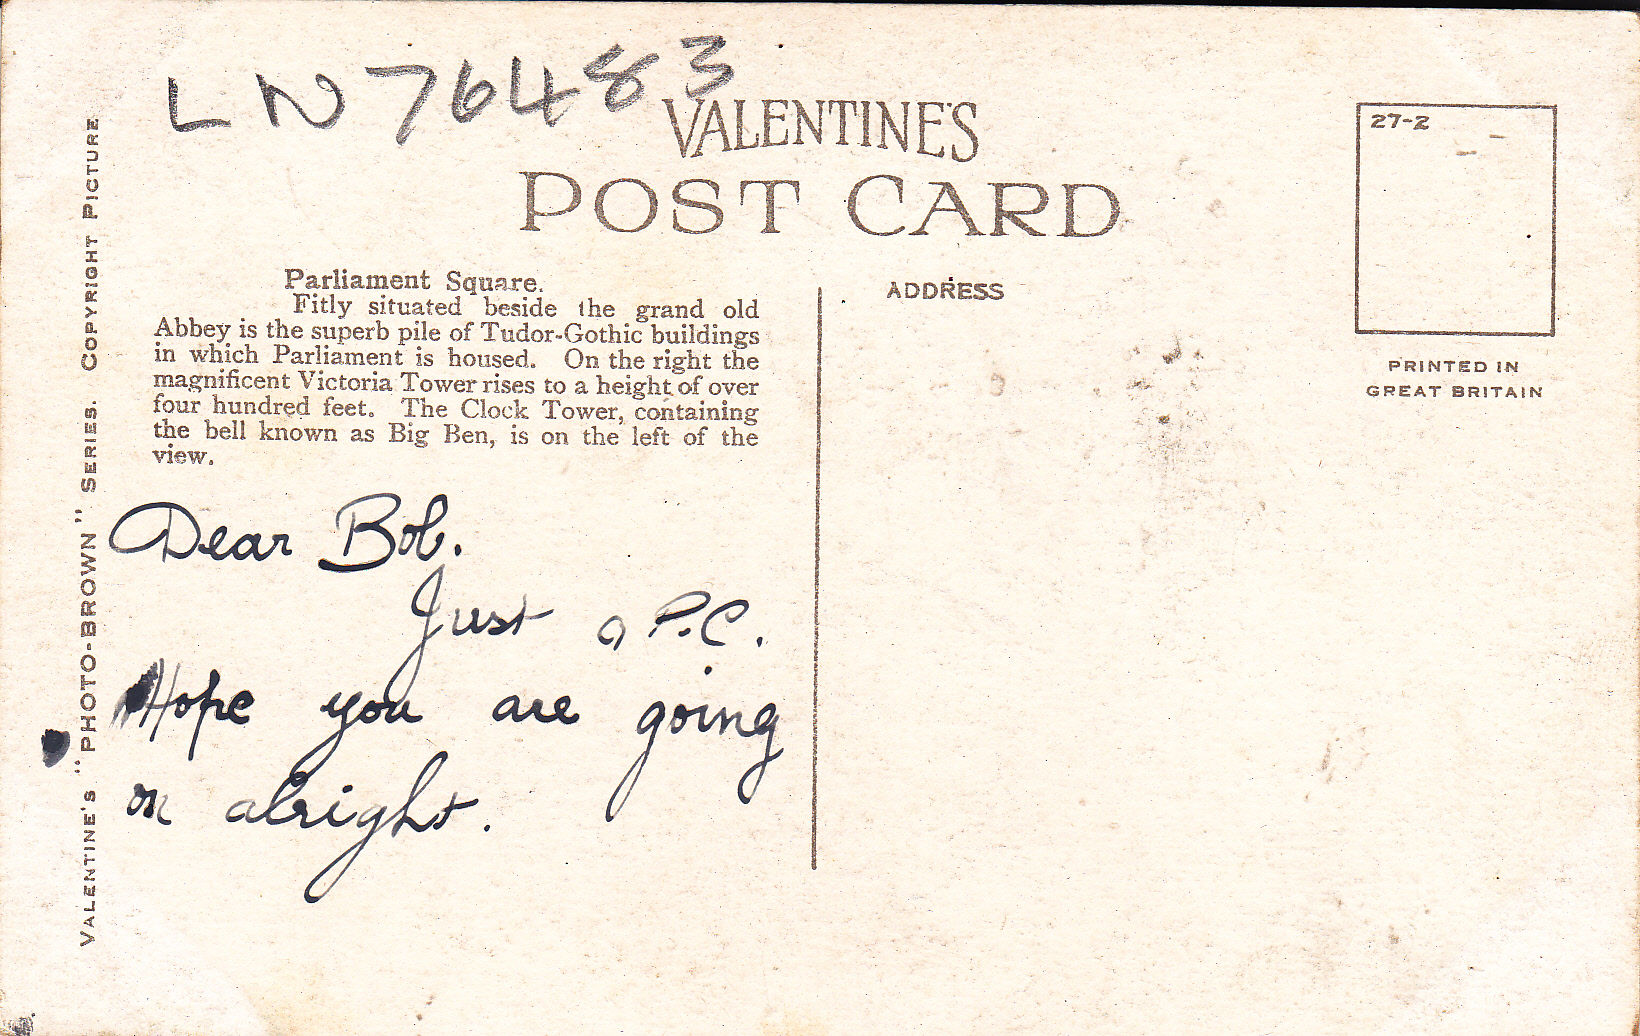 LN 76483
VALENTINE'S
POST CARD
27-2
PRINTED IN
GREAT BRITAIN
ADDRESS
Parliament Square.
Fitly situated beside the grand old
Abbey is the superb pile of Tudor-Gothic buildings
in which Parliament is housed. On the right the
magnificent Victoria Tower rises to a height of over
four hundred feet. The Clock Tower, containing
the bell known as Big Ben, is on the left of the
view.
Dear Bob.
Just a P.C.
Hope you are going
on alright.
VALENTINE'S "PHOTO-BROWN" SERIES. COPYRIGHT PICTURE